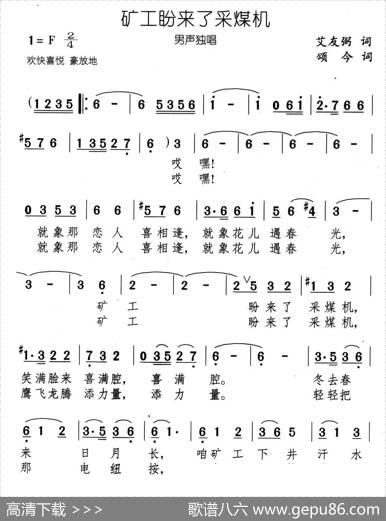 矿工盼来了采煤机
1=F 2/4
男声独唱
艾友弼 词
欢快喜悦 豪放地
颂 今 词
(1235 |: 6 - | 6 5356 | 1 - | 1 061 | 2·766 |
#576 | 13527 | 6)3 | 6 - | 6 - | 6 - |
哎 嘿!
哎 嘿!
0353 | 66 | #576 | 3·661 | 56 #4 |
就象那 恋人 喜相逢, 就象花儿 遇春 光,
就象那 恋人 喜相逢, 就象花儿 遇春 光,
3 - | 3 6 | 2 - | 2 - | 2 5 32 | #132 |
矿 工 盼来了 采煤机,
矿 工 盼来了 采煤机,
#1·322 | 7232 | 03527 | 6 - | 6 - | 033 |
笑满脸来 喜满腔, 喜 满 腔。 冬去春
鹰飞龙腾 添力量, 添 力 量。 轻轻把
612 | 3·536 | 612 | 3·536 | 5323 |
来 日月 长, 咱矿工 下井 汗水
那 电纽 按,
高清下载 >>>
歌谱八六 www.gepu86.com